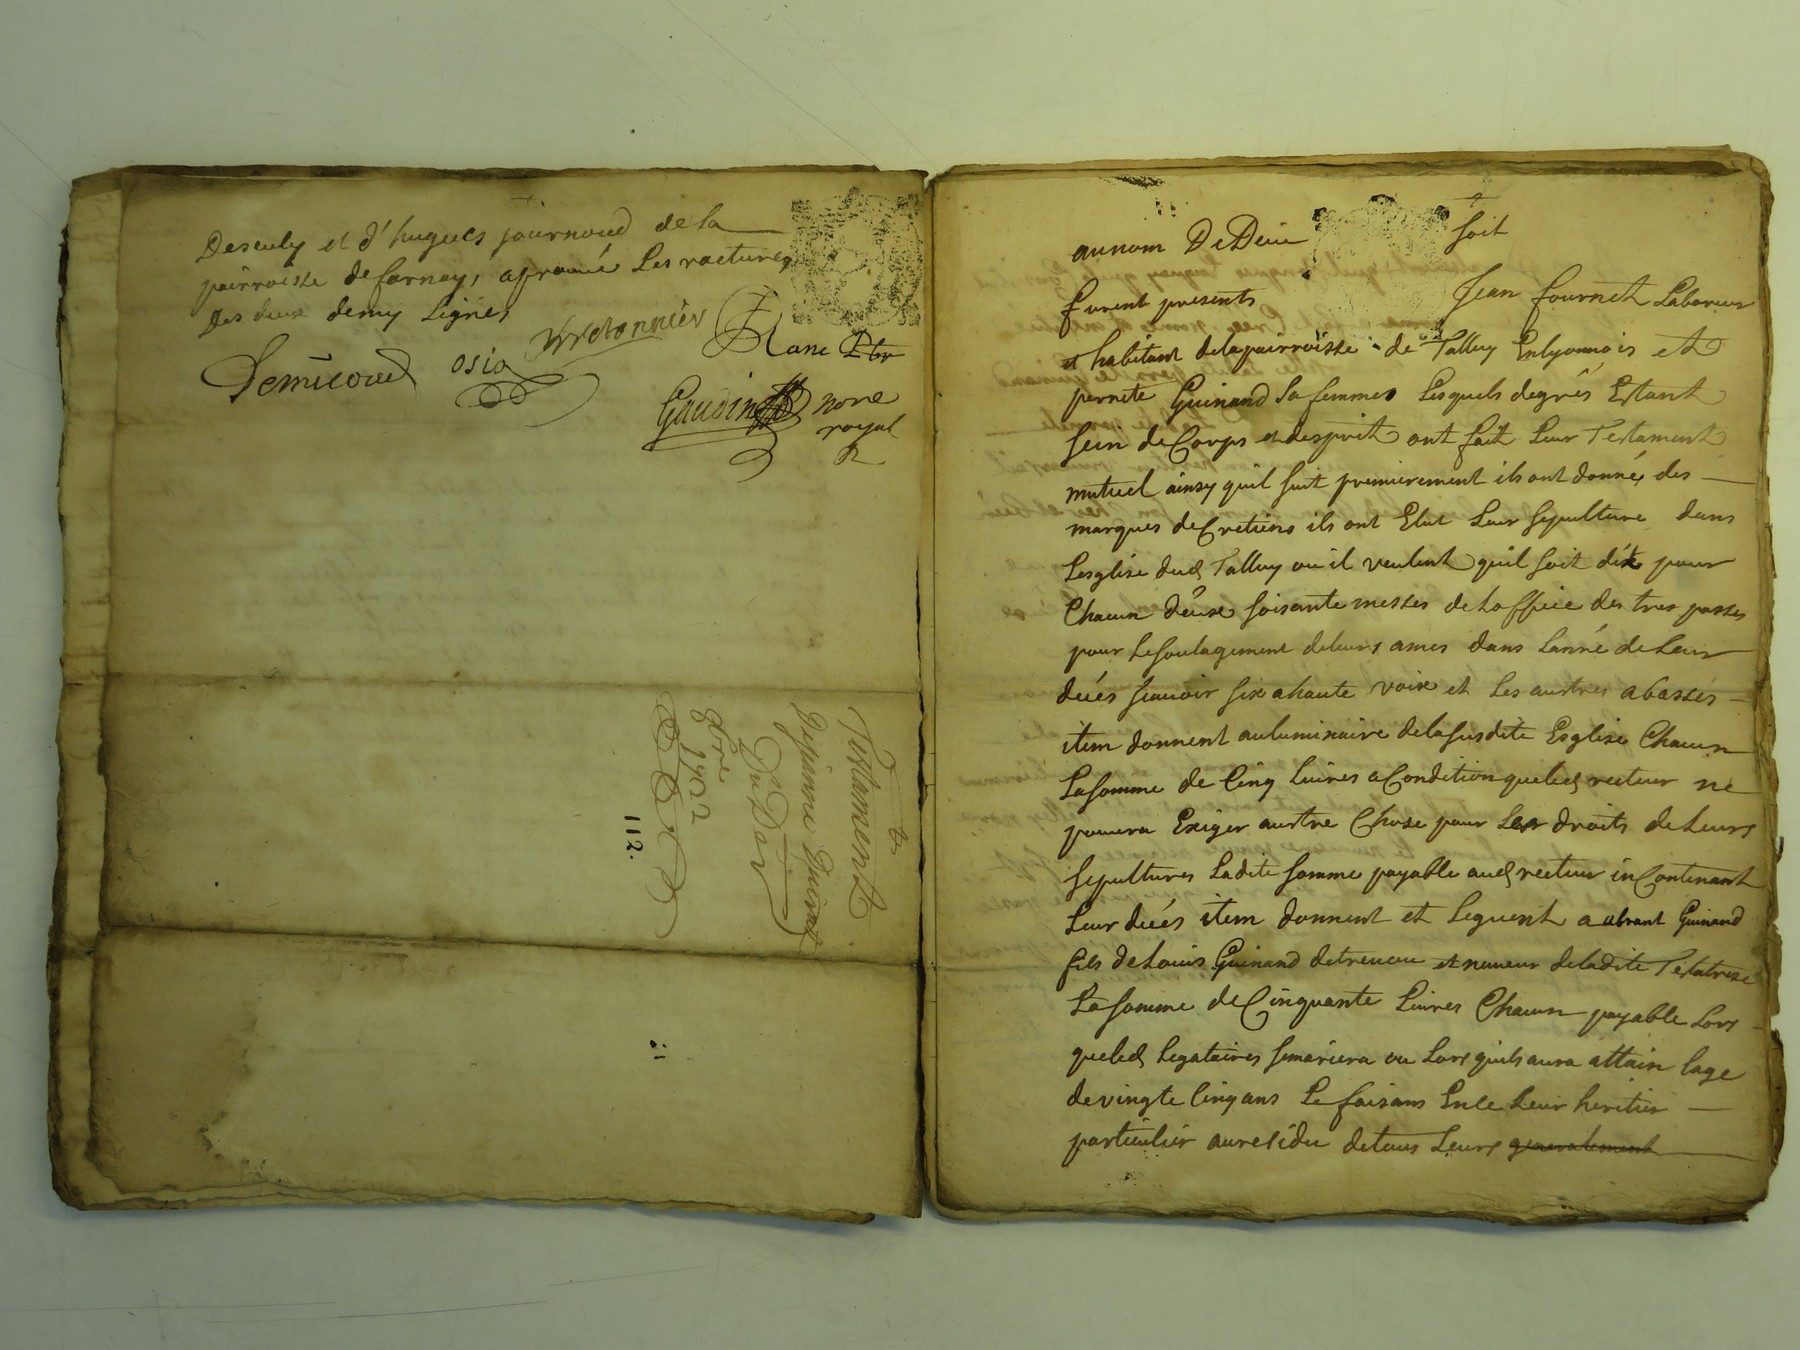 Deseuly et d'hugues journoud de la
pairroisse de farnay, aprouué Les ractures
Des deux demy Lignes
Demicoud osio Vrretonnier
Plane Ptr
Gaudin nore
royal
Testament
De jienne
Du Dex
gbre
1722
112.
au nom De Dieu soit
furent presents Jean fournet Laboreur
et habitant delapairroisse de Talluy Enlyonnois et
pernete Guinand Sa femme Lesquels degrés Estant
sein de Corps et desprit ont fait Leur Testament
mutuel ainsy quil suit premierement ils ont donné des
marques de Cretiens ils ont Elut Leur sepulture dans
Lesglise dud Talluy ou il veulent quil soit dix pour
Chacun deux soisante messes de Loffice des tres passes
pour Le soulagement de leurs ames dans Lanné de Leur
decés scauoir six ahaute voix et Les austres abasses
item donnent auluminaire delasusdite Esglise Chacun
La somme de Cinq Liures a Condition queled recteur ne
pouura Exiger austre Chose pour Les droits de Leurs
sepultures Ladite somme payable aud recteur in Continant
Leur decés item donnent et Leguent a abrant Guinand
fils de Louis Guinand detreuou et neueur deladite Testatrise
La somme de Cinquante Liures Chacun payable Lors
queled Legataires semariera ou Lors quils aura attain lage
de vingte Cinq ans Le faisans En Ce Leur heritier
particulier au residu de tous Leurs generalement